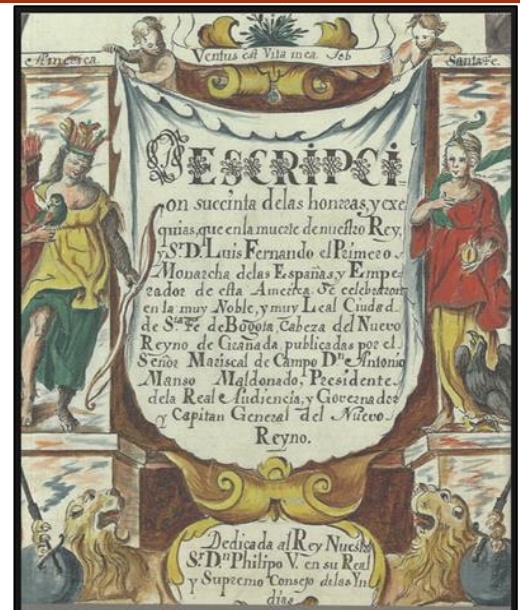 America.
Ventus est Vita mea Job
Santa Fe.
DESCRIPCI
on succinta delas honrras, y exe
quias, que en la muerte de nuestro Rey,
y Sr. Dn. Luis Fernando el Primero
Monarcha delas Españas, y Empe
rador de esta America. Se celebraron
en la muy Noble, y muy Leal Ciudad
de Sta. Fe de Bogota, Cabeza del Nuevo
Reyno de Granada, publicadas por el
Señor Mariscal de Campo Dn. Antonio
Manso Maldonado, Presidente
dela Real Audiencia, y Governador
y Capitan General del Nuevo
Reyno.
Dedicada al Rey Nuestro
Sr. Dn. Philipo V. en su Real
y Supremo Consejo delas Yn
dias